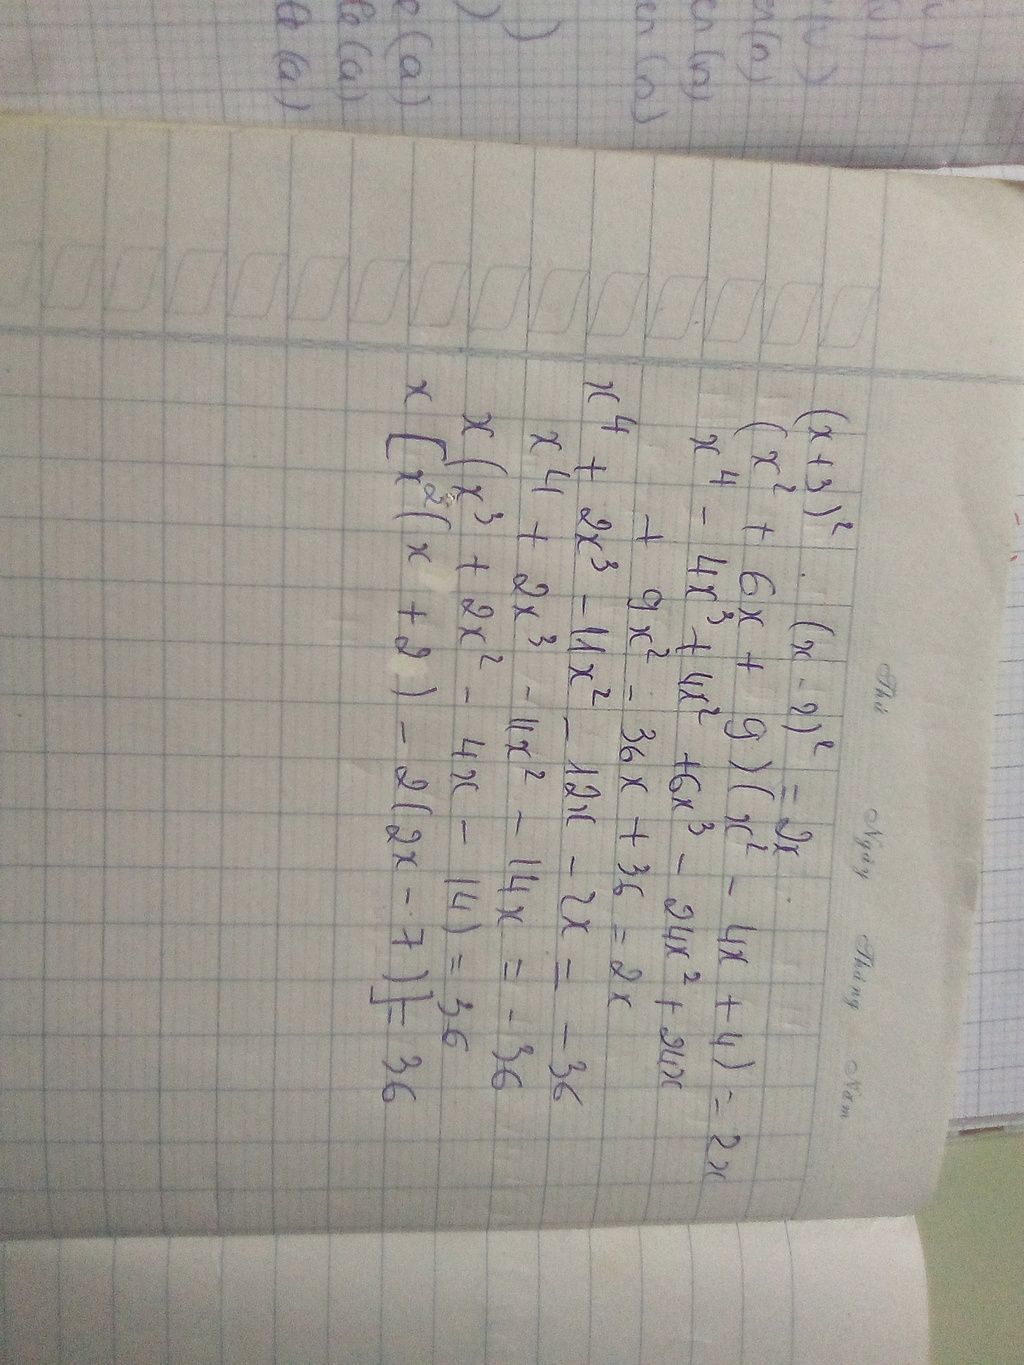 Thứ Ngày Tháng Năm
(x+3)² . (x-2)² = 2x
(x² + 6x + 9)(x² - 4x + 4) = 2x
x⁴ - 4x³ + 4x² + 6x³ - 24x² + 24x
+ 9x² - 36x + 36 = 2x
x⁴ + 2x³ - 11x² - 12x - 2x = - 36
x⁴ + 2x³ - 11x² - 14x = - 36
x(x³ + 2x² - 4x - 14) = 36
x[x²(x + 2) - 2(2x - 7)] = 36